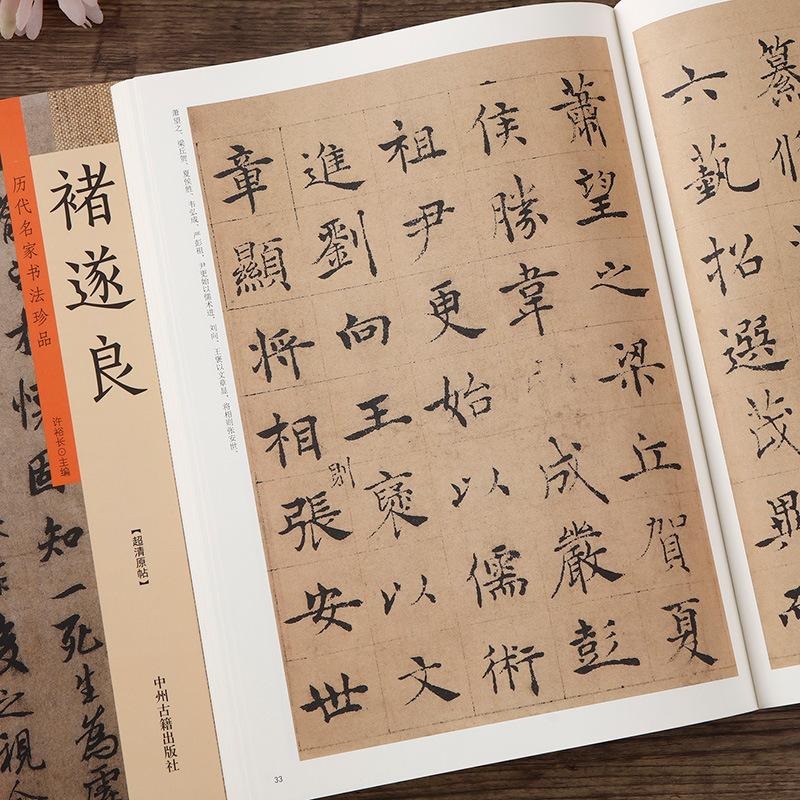 纂
六藝招選茂異而
蕭望之梁丘賀夏
侯勝韋成嚴彭
祖尹更始以儒術
進劉向王褒以文
章顯將相則張安世
萧望之、梁丘贺、夏侯胜、韦弘成、严彭祖、尹更始以儒术进，刘向、王褒以文章显。将相则张安世、
33
褚遂良
【超清原帖】
中州古籍出版社
历代名家书法珍品
许裕长⊙主编
固知一死生為虛
之視今